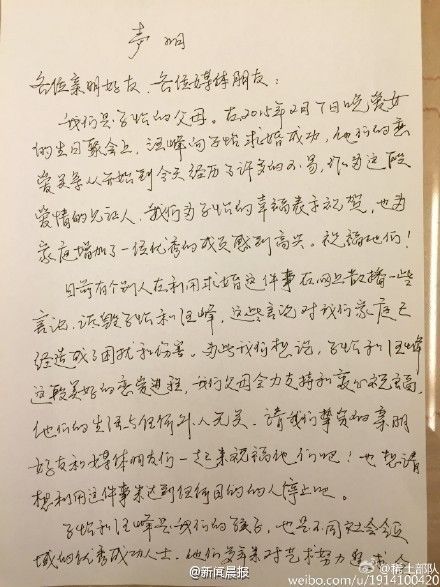 声明
各位亲朋好友、各位媒体朋友：
我们是子怡的父母。在2015年2月7日晚，爱女
的生日聚会上，汪峰向子怡求婚成功，他们的恋
爱关系从开始到今天经历了许多的不易，作为这段
爱情的见证人，我们为子怡的幸福表示祝贺，也为
家庭增加了一位优秀的成员感到高兴。祝福他们！
目前有个别人在利用求婚这件事在网上散播一些
言论，诋毁子怡和汪峰，这些言论对我们家庭已
经造成了困扰和伤害。为此我们想说，子怡和汪峰
这段美好的恋爱进程，我们父母全力支持和衷心祝福，
他们的生活与任何外人无关。请我们挚爱的亲朋
好友和媒体朋友们一起来祝福他们吧！也想请
想利用这件事来达到任何目的的人停止吧。
子怡和汪峰是我们的孩子，也是不同社会领
域的优秀成功人士。他们多年来对艺术努力
@新闻晨报
@稀土部队
weibo.com/u/1914100420